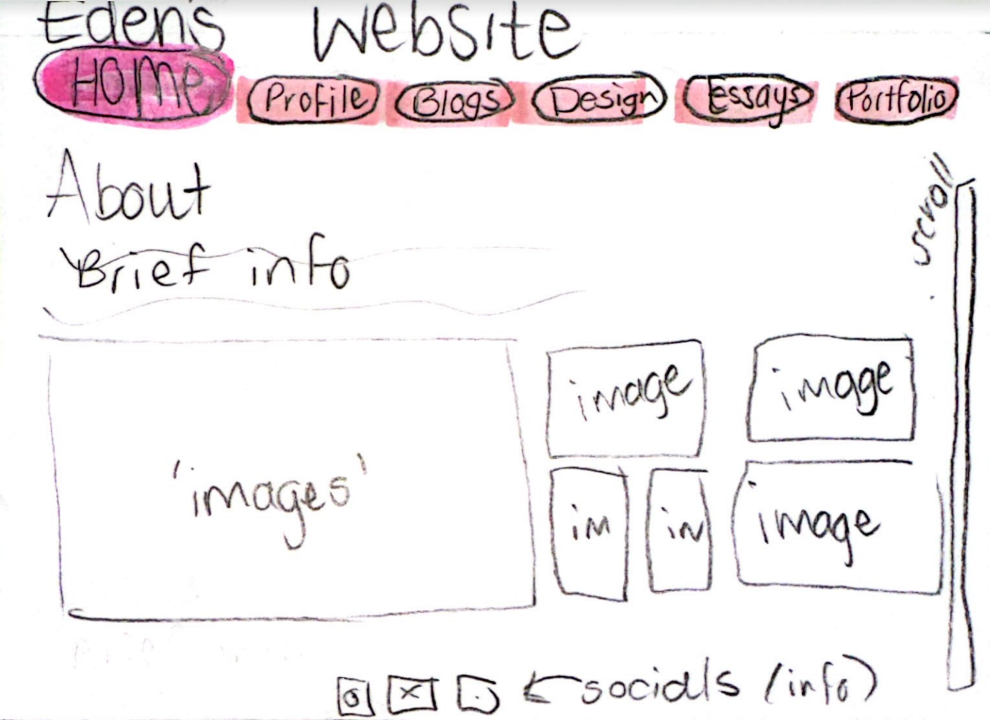 Eden's Website
Home Profile Blogs Design Essays Portfolio
About
scroll
Brief info
'images' image image
im in image
socials (info)